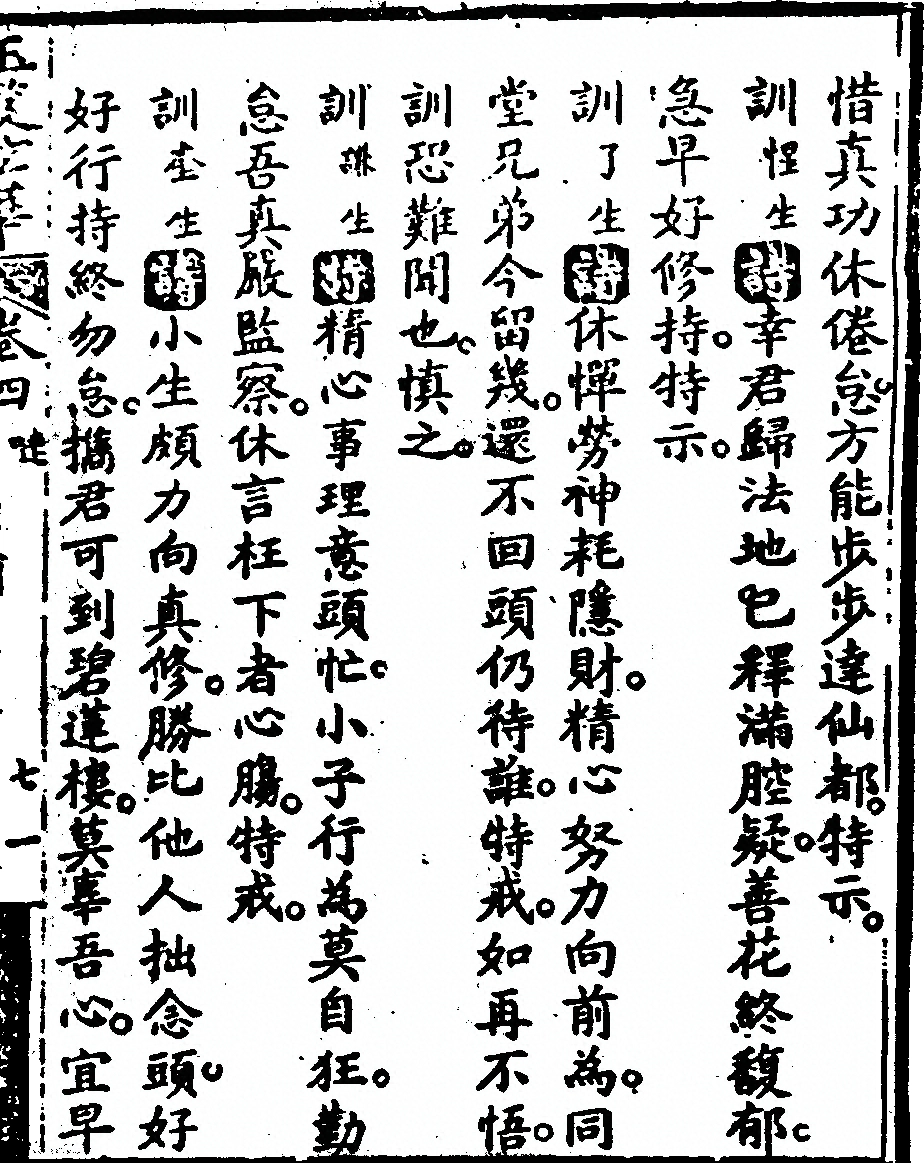 惜真功休倦怠方能步步達仙都特示
訓惺生詩幸君歸法地已釋滿腔疑善花終馥郁
急早好修持特示
訓了生詩休憚勞神耗隱財精心努力向前為同
堂兄弟今留幾還不回頭仍待誰特戒如再不悟
訓恐難聞也慎之
訓 生詩精心事理意頭忙小子行為莫自狂勤
怠吾真嚴監察休言枉下者心腸特戒
訓 生詩小生頗力向真修勝比他人拙念頭好
好行持終勿怠攜君可到碧蓮樓莫辜吾心宜早
卷四 七一